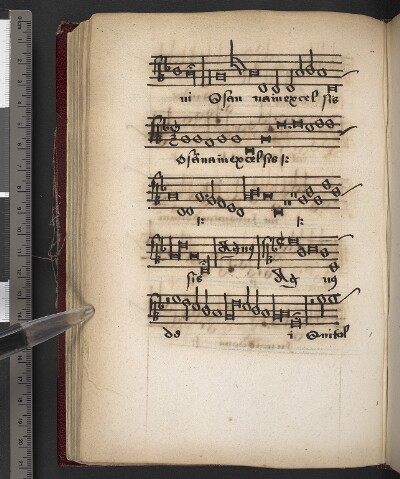 ni Osan na in excel sis
Osāna in excelsis k
k k
sis Ag nus
de i Qui tol